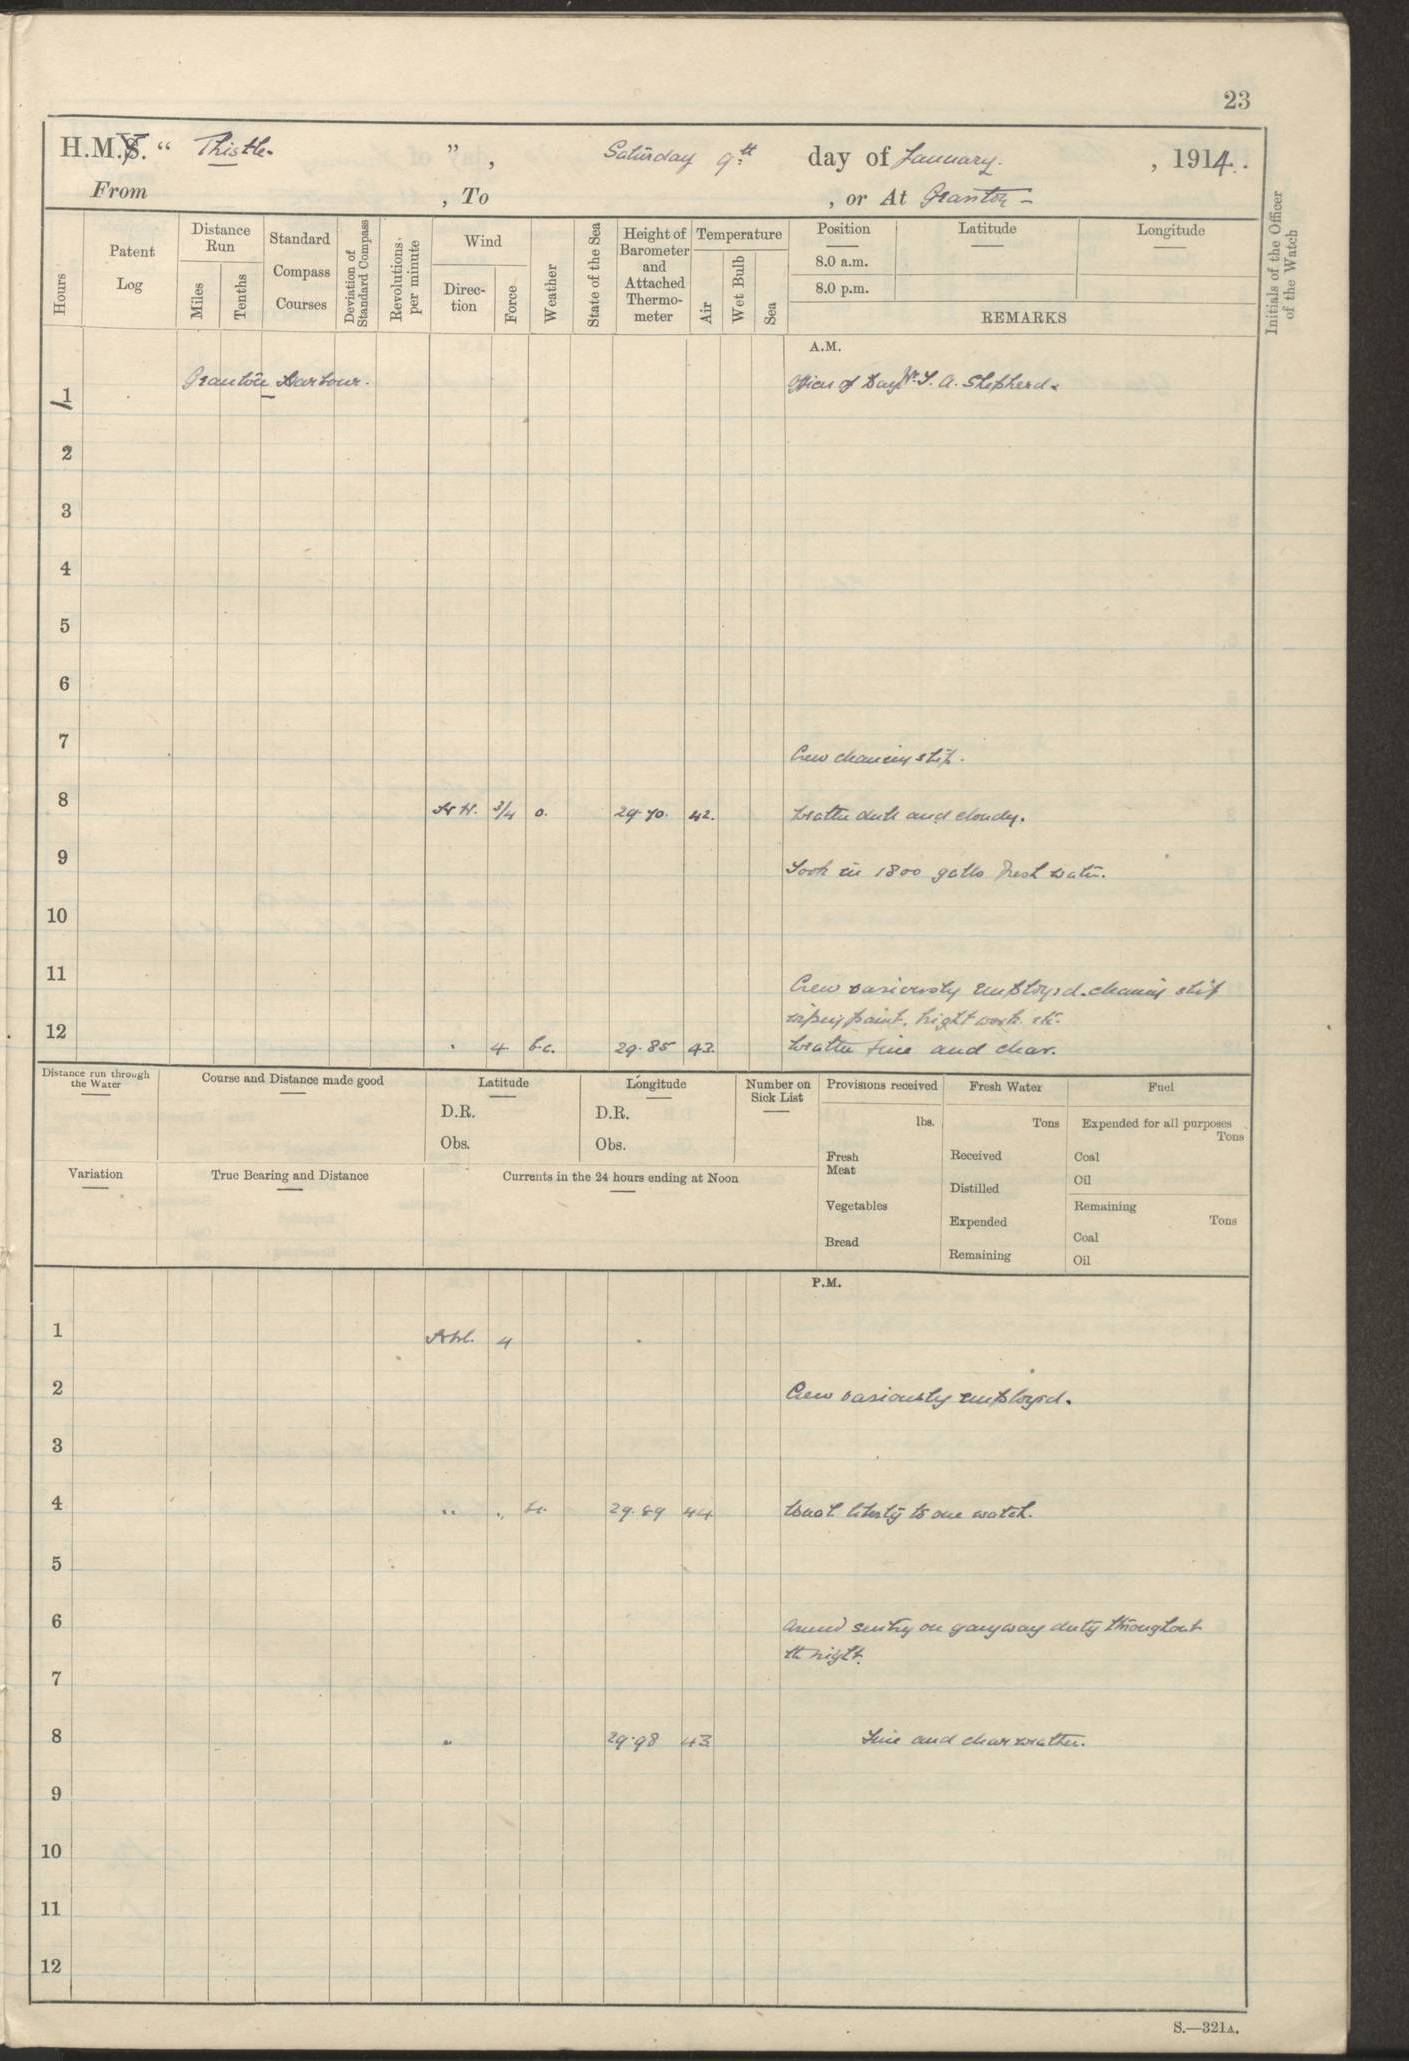 23
H.M.Y. " Thistle. " , Saturday 9th day of January. , 1914.
From , To , or At Granton -
Hours
Patent Log
Distance Run
Miles
Tenths
Standard Compass Courses
Deviation of Standard Compass
Revolutions per minute
Wind
Direction
Force
Weather
State of the Sea
Height of Barometer and Attached Thermometer
Temperature
Air
Wet Bulb
Sea
Position
8.0 a.m.
8.0 p.m.
Latitude
Longitude
REMARKS
Initials of the Officer of the Watch
A.M.
1 Granton Harbour. Officer of Day Mr. A. Shepherd.
2
3
4
5
6
7 Crew cleaning ship.
8 3/4 o. 29.70. 42. Weather dull and cloudy.
9 Took in 1800 galls fresh water.
10
11 Crew variously employed. cleaning ship
wiping paint, bright work etc.
12 " 4 b.c. 29.85 43. Weather fine and clear.
Distance run through the Water
Course and Distance made good
Latitude
D.R.
Obs.
Longitude
D.R.
Obs.
Number on Sick List
Provisions received
lbs.
Fresh Meat
Vegetables
Bread
Fresh Water
Tons
Received
Distilled
Expended
Remaining
Fuel
Expended for all purposes
Tons
Coal
Oil
Remaining
Tons
Coal
Oil
Variation
True Bearing and Distance
Currents in the 24 hours ending at Noon
P.M.
1 4
2 Crew variously employed.
3
4 " " 29.89 44 Usual liberty to one watch.
5
6 Armed sentry on gangway duty throughout
the night.
7
8 " 29.98 43 Fine and clear weather.
9
10
11
12
S.—321A.